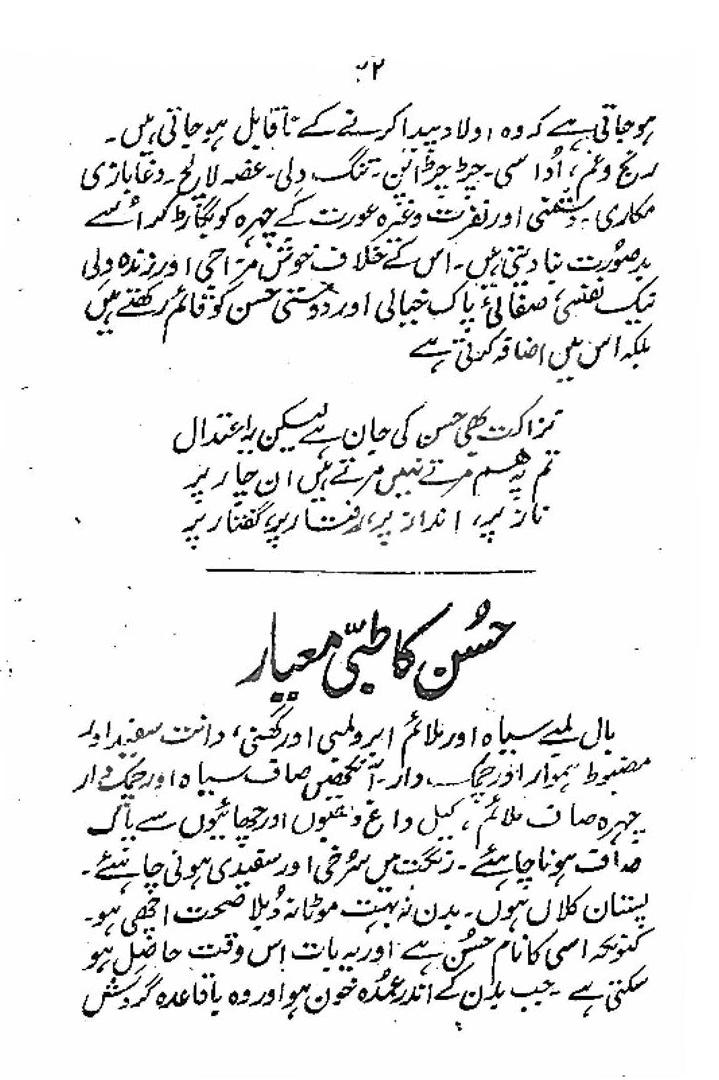 ہو جاتی ہے کہ وہ اولاد پیدا کرنے کے ناقابل ہو جاتی ہیں۔
رنج و غم، اُداسی۔ چڑ چڑاپن۔ تنگ دلی۔ غصہ لالچ۔ دغا بازی
مکاری۔ دشمنی اور نفرت وغیرہ عورت کے چہرہ کو بگاڑ کر اُسے
بد صورت بنا دیتی ہیں۔ اس کے خلاف خوش مزاجی اور زندہ دلی
نیک نفسی، صفائی، پاک خیالی اور دوستی حسن کو قائم رکھتے ہیں
بلکہ اس میں اضافہ کرتی ہے
نزاکت بھی حسن کی جان ہے لیکن بہ اعتدال
تم پہ ہم مرتے نہیں مرتے ہیں ان چار پر
ناز پر، انداز پر، رفتار پر، گفتار پر
حُسن کا طبّی معیار
بال لمبے سیاہ اور ملائم ابرو لمبی اور گھنی، دانت سفید اور
مضبوط ہموار اور چمک دار۔ آنکھیں صاف سیاہ اور چمک دار
چہرہ صاف ملائم، کیل داغ دھبوں اور چھائیوں سے پاک
صاف ہونا چاہئے۔ رنگت میں سرخی اور سفیدی ہونی چاہئے۔
پستان کلاں ہوں۔ بدن نہ بہت موٹا نہ دُبلا صحت اچھی ہو۔
کیونکہ اسی کا نام حُسن ہے اور یہ بات اس وقت حاصل ہو
سکتی ہے۔ جب بدن کے اندر عمدہ خون ہو اور وہ باقاعدہ گردش